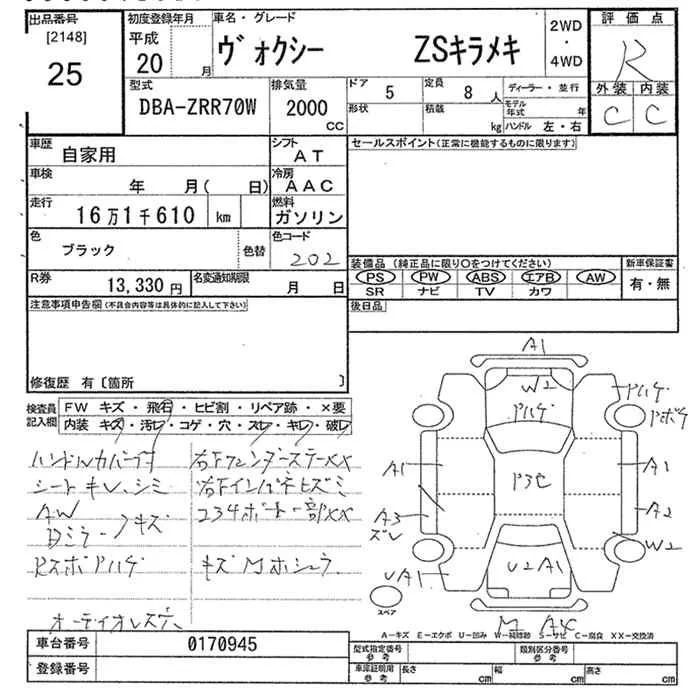 出品番号 初度登録年月 車名・グレード 評価点
[2148] 平成 2WD
25 20 月 ヴォクシー ZSキラメキ ・ R
4WD
外装 内装
型式 排気量 ドア 5 定員 8 人 ディーラー・並行 C C
DBA-ZRR70W 2000 CC 形状 積載 kg モデル年式 年
ハンドル 左・右
車歴 自家用 シフト AT セールスポイント(正常に機能するものに限ります)
車検 年 月( 日) 冷房 AAC
走行 16万1千610 km 燃料 ガソリン
色 ブラック 色替 色コード 202
装備品(純正品に限り○をつけてください) 新車保証書
R券 13,330円 名変通知期限 月 日 PS PW ABS エアB AW 有・無
SR ナビ TV カワ
注意事項申告欄(不具合内容等は具体的に記入して下さい) 後日品
修復歴 有〔箇所 〕
検査員記入欄 FW キズ・飛石・ヒビ割・リペア跡・×要
内装 キズ・汚レ・コゲ・穴・スレ・キレ・破レ
ハンドルカバー付 右Fフェンダーステー××
シートキレ、シミ 右Fインパネヒズミ
AW 234ボート一部××
Dミラー キズ
RスポPハゲ キズMホシュウ
オーディオレス穴
A1
W2
Pハゲ
Pハゲ
Pボケ
A1
P3セ
A1
A3
ズレ
A2
W2
UA1
U2 A1
スペア
M A4
A-キズ E-エクボ U-凹み W-補修跡 S-サビ C-腐食 XX-交換済
車台番号 0170945 型式指定番号 参考 類別区分番号 参考
登録番号 車庫証明用 参考 長さ cm 幅 cm 高さ cm